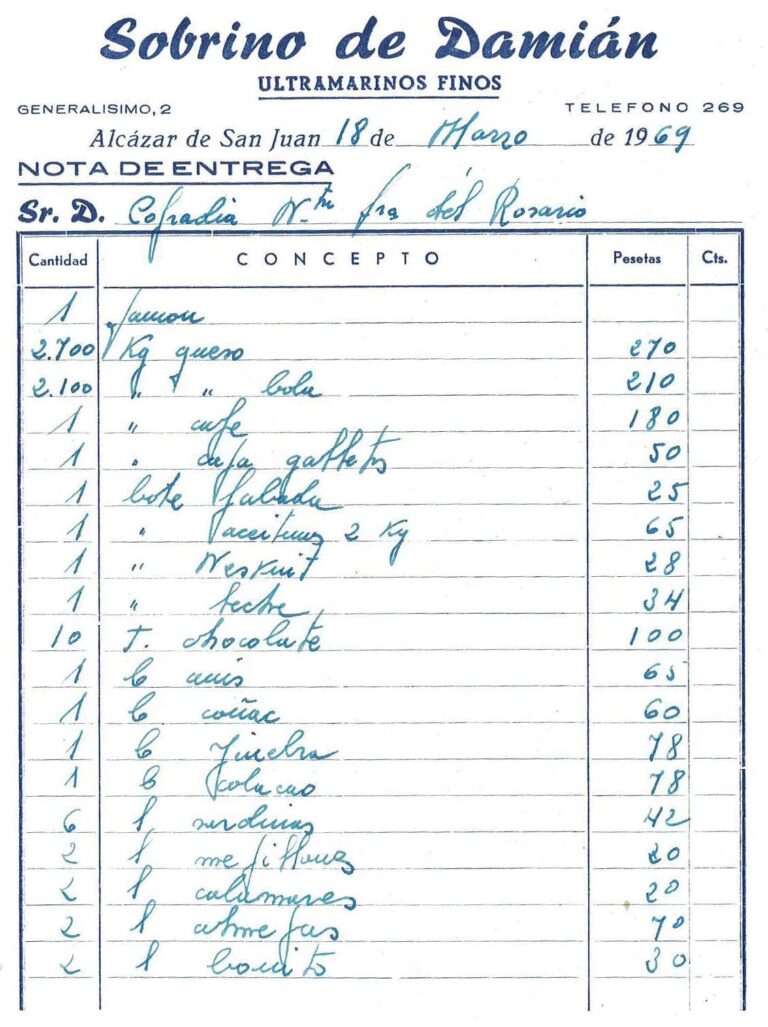 Sobrino de Damián
ULTRAMARINOS FINOS
GENERALISIMO, 2 TELEFONO 269
Alcázar de San Juan 18 de Marzo de 1969
NOTA DE ENTREGA
Sr. D. Cofradia Ntra Sra del Rosario
Cantidad CONCEPTO Pesetas Cts.
1 Jamon
2.700 Kg queso 270
2.100 " " bola 210
1 " cafe 180
1 " caja galletas 50
1 bote fabada 25
1 " aceitunas 2 Kg 65
1 " Neskuit 28
1 " leche 34
10 T. chocolate 100
1 b anis 65
1 b coñac 60
1 b Jinebra 78
1 b colacao 78
6 l sardinas 42
2 l mejillones 20
2 l calamares 20
2 l almejas 70
2 l bonito 30